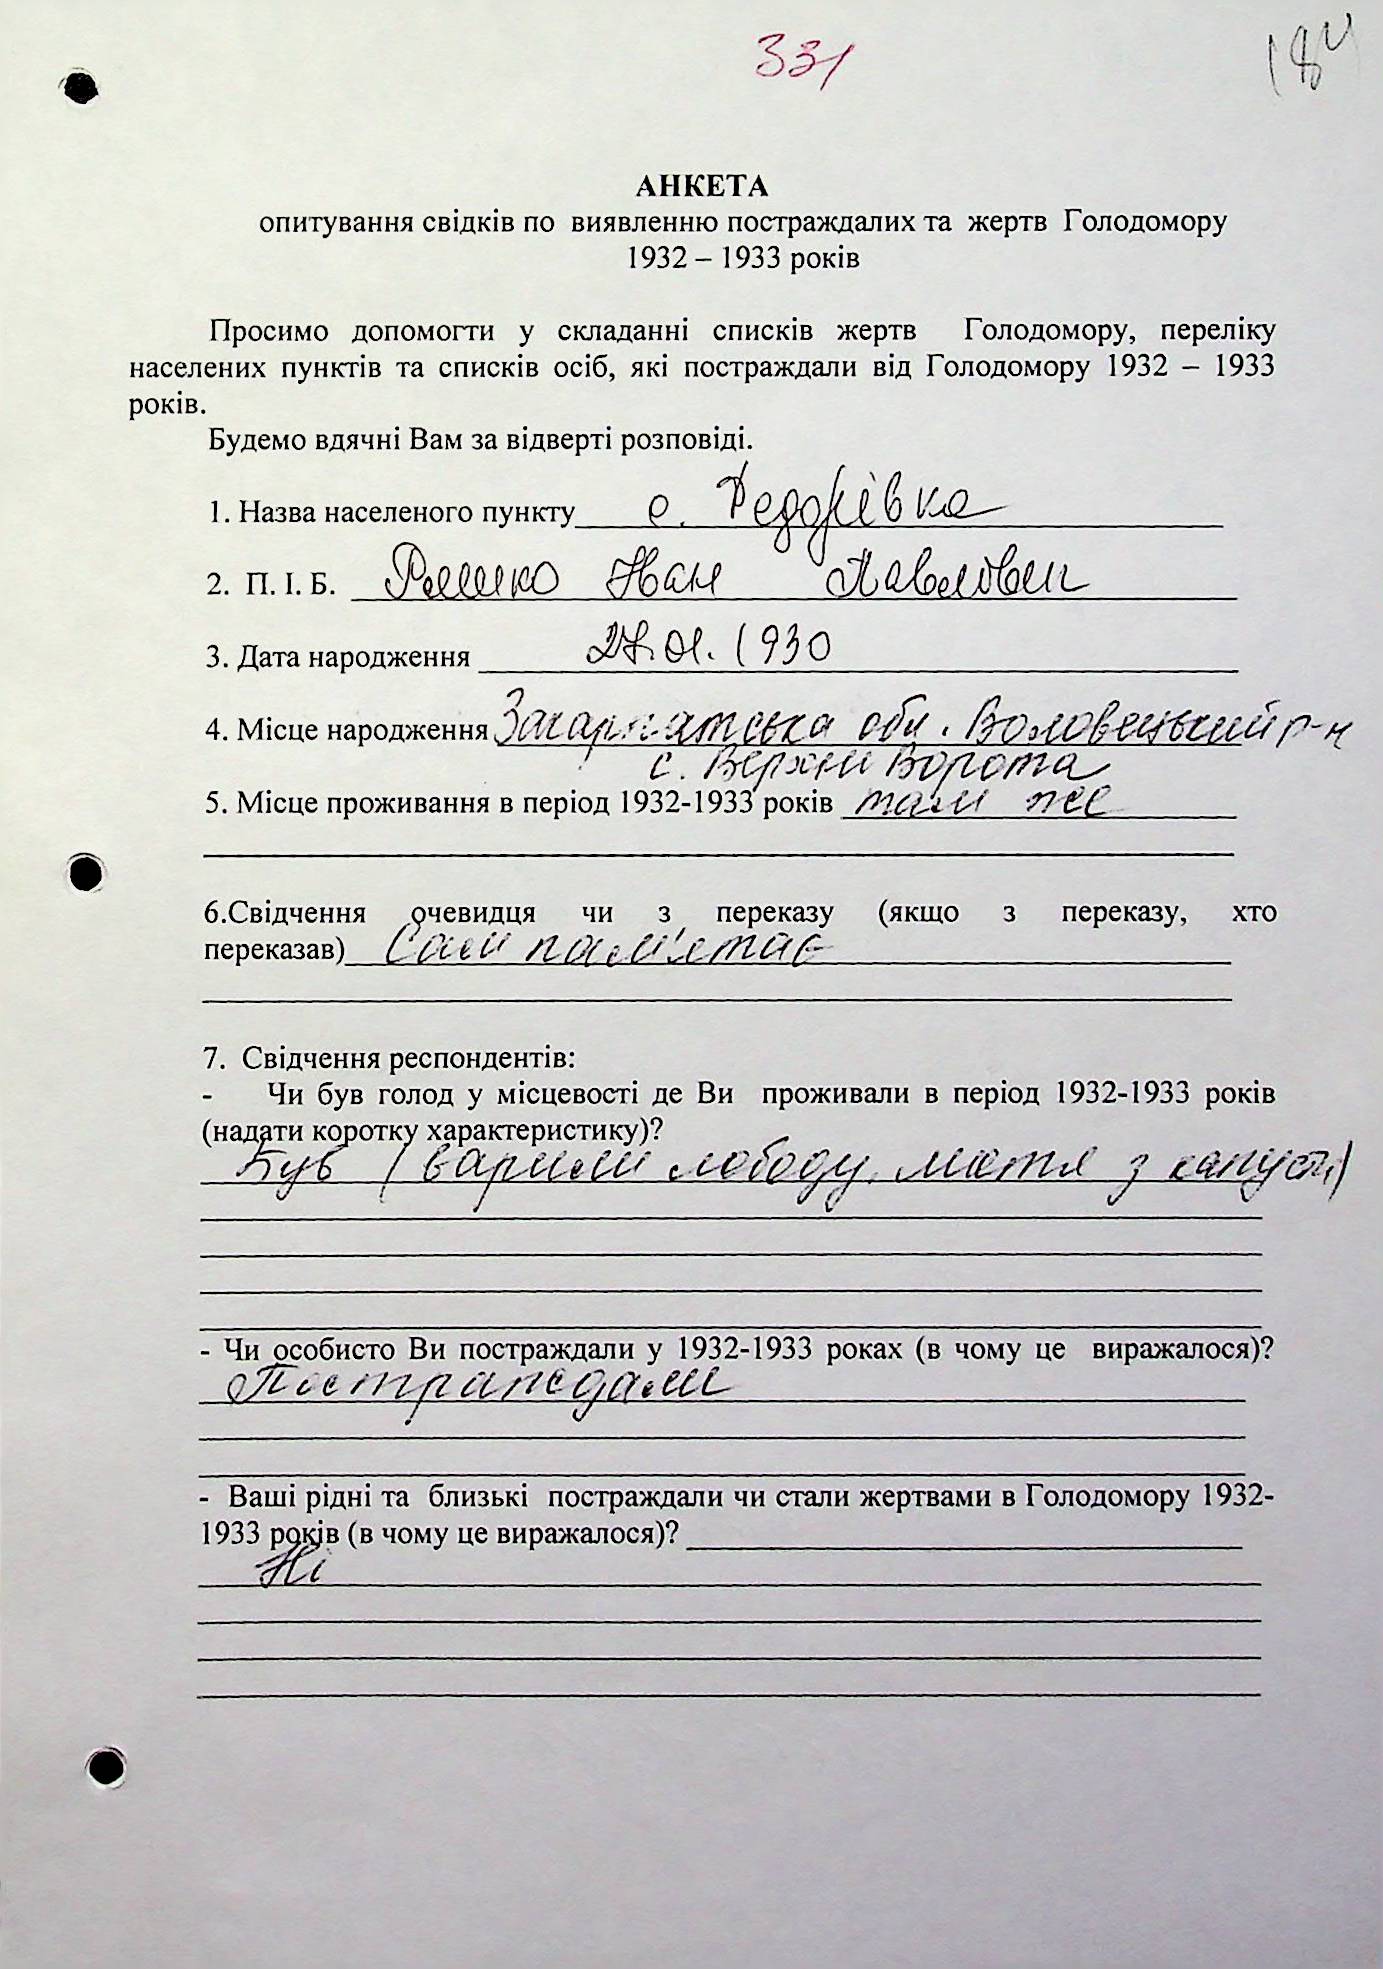 331
184
АНКЕТА
опитування свідків по виявленню постраждалих та жертв Голодомору
1932 – 1933 років
Просимо допомогти у складанні списків жертв Голодомору, переліку
населених пунктів та списків осіб, які постраждали від Голодомору 1932 – 1933
років.
Будемо вдячні Вам за відверті розповіді.
1. Назва населеного пункту с. Федорівка
2. П. І. Б. Іван Павлович
3. Дата народження 27.01.1930
4. Місце народження Закарпатська обл. Воловецький р-н
с. Верхні Ворота
5. Місце проживання в період 1932-1933 років там же
6.Свідчення очевидця чи з переказу (якщо з переказу, хто
переказав) Сам пам'ятає
7. Свідчення респондентів:
- Чи був голод у місцевості де Ви проживали в період 1932-1933 років
(надати коротку характеристику)?
Був (варили лободу, листя з капусти)
- Чи особисто Ви постраждали у 1932-1933 роках (в чому це виражалося)?
Постраждали
- Ваші рідні та близькі постраждали чи стали жертвами в Голодомору 1932-
1933 років (в чому це виражалося)?
Ні